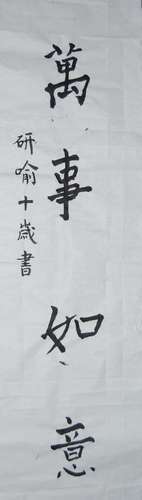 萬事如意
研喻十歲書